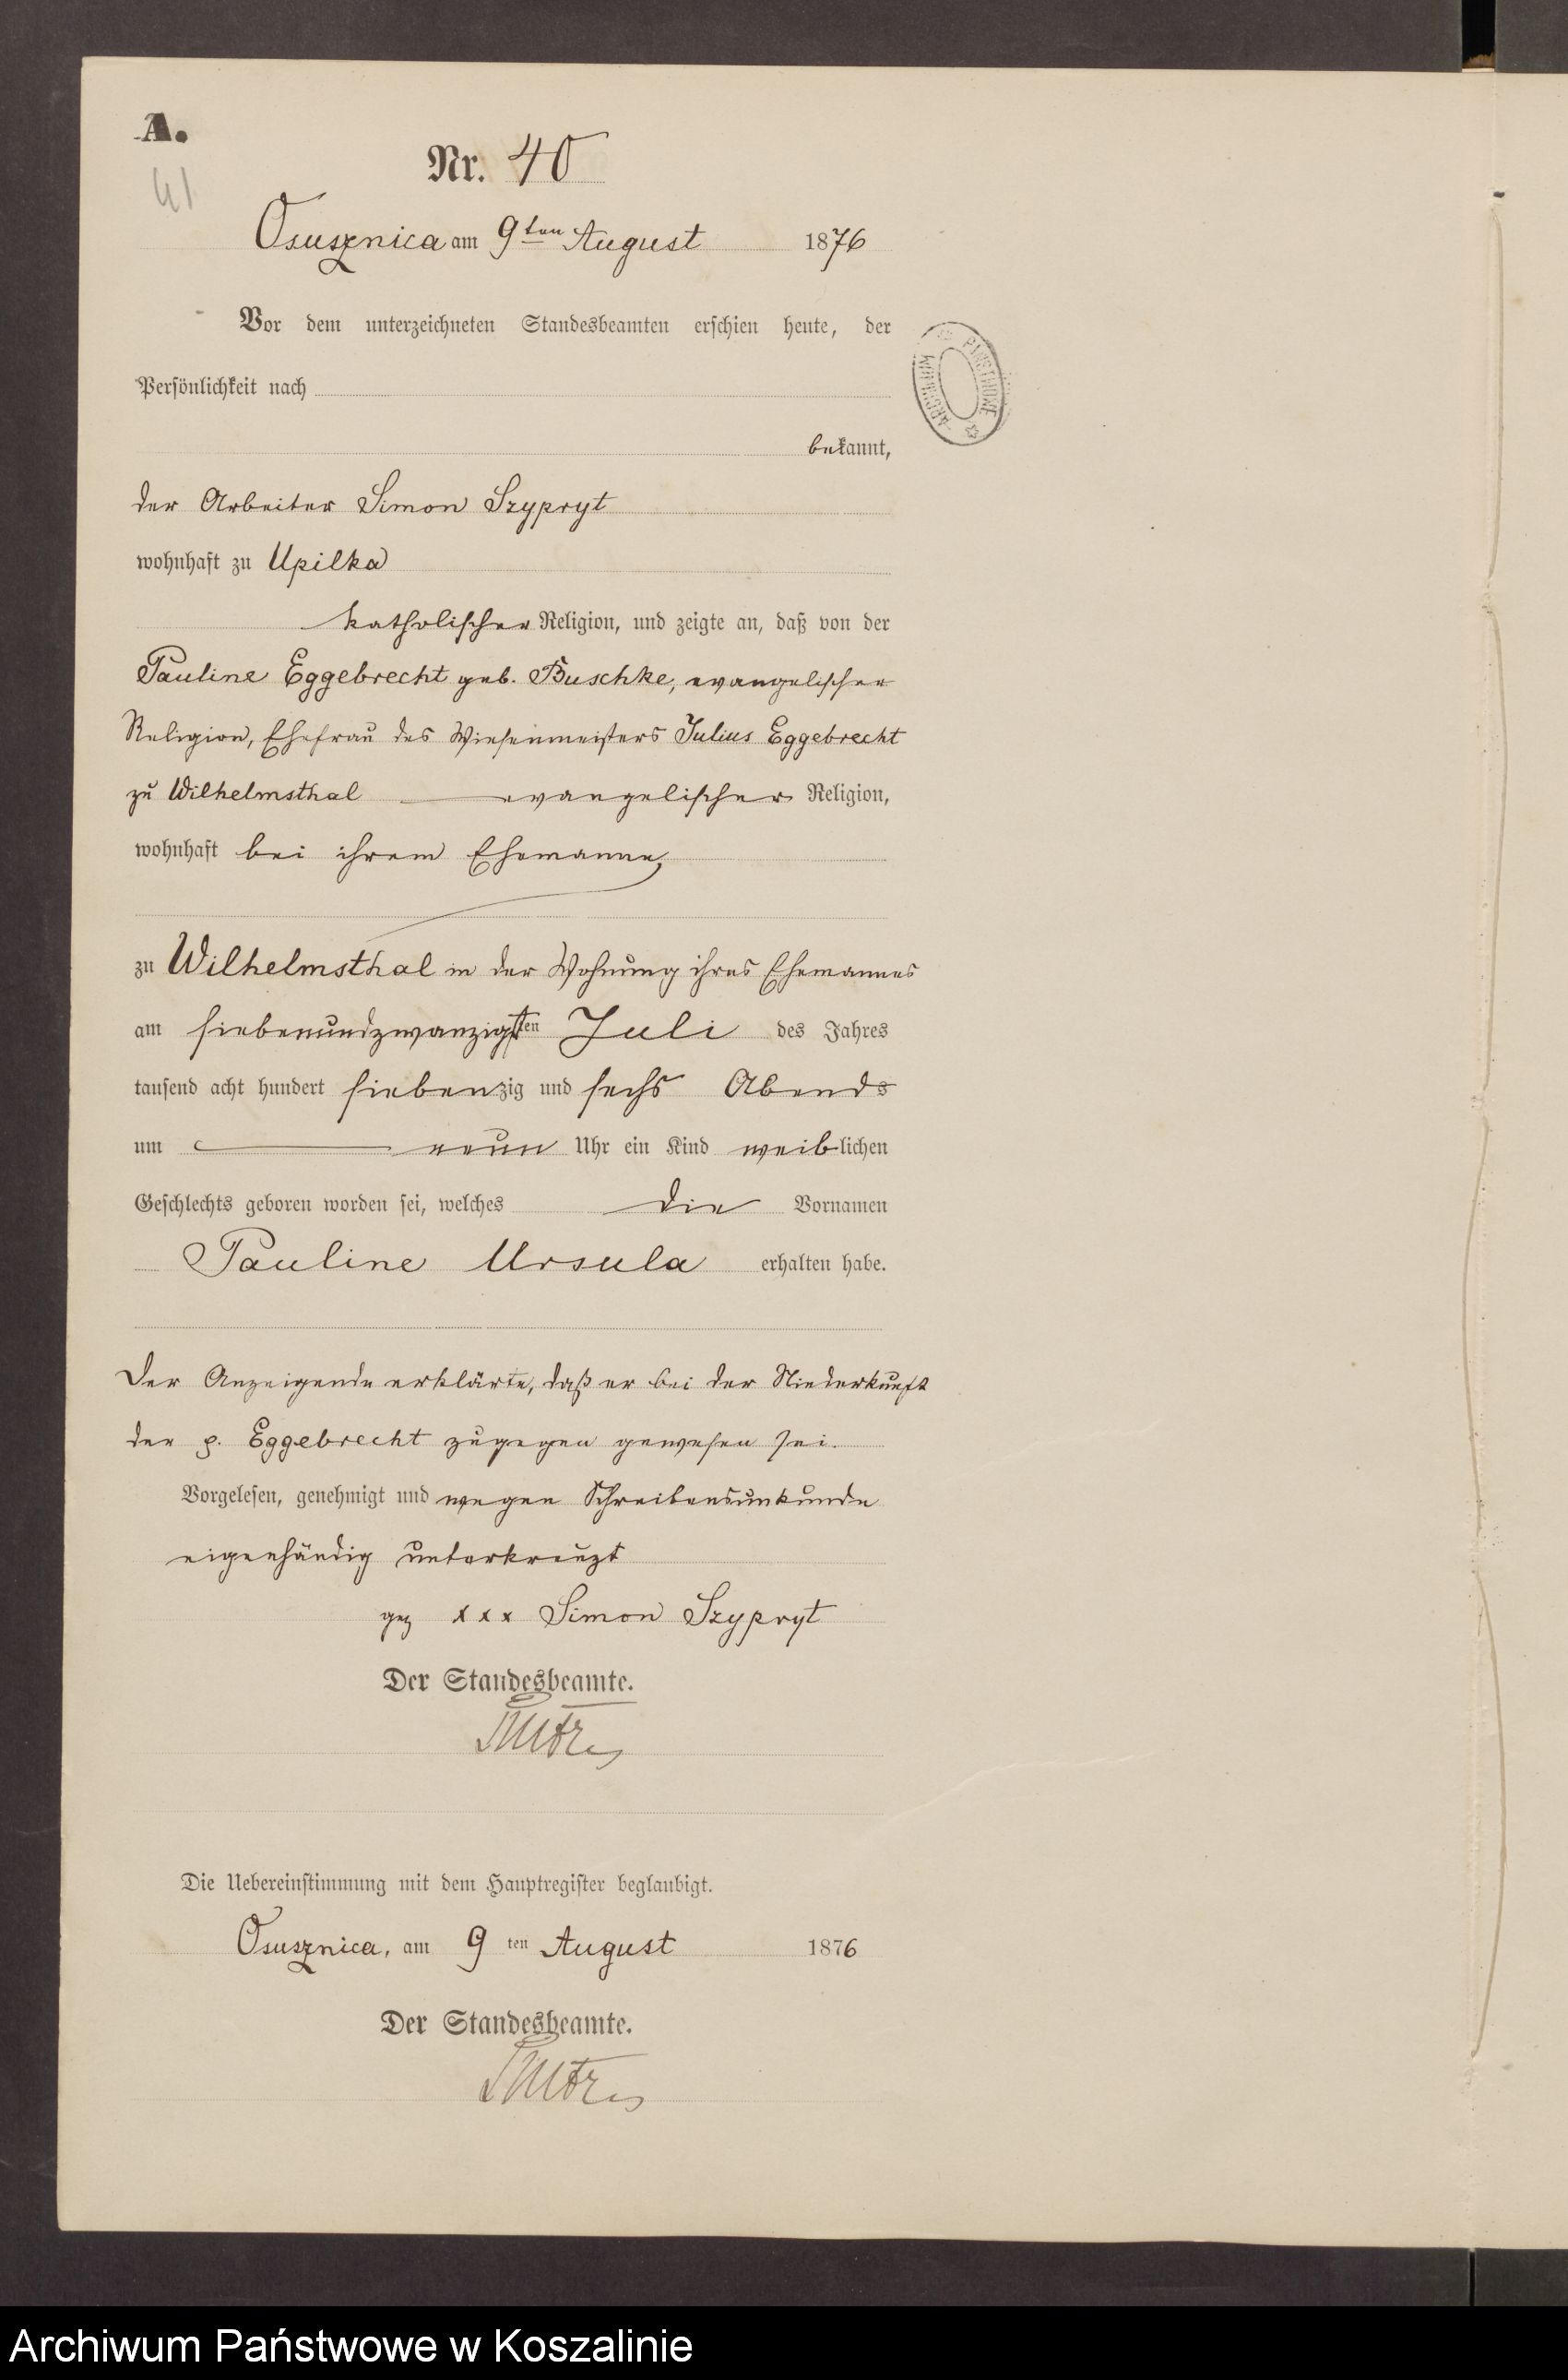 A.
41
Nr. 40
Osusznica am 9ten August 1876
Vor dem unterzeichneten Standesbeamten erschien heute, der
Persönlichkeit nach
bekannt,
der Arbeiter Simon Szypryt
wohnhaft zu Upilka
katholischer Religion, und zeigte an, daß von der
Pauline Eggebrecht geb. Buschke, evangelischer
Religion, Ehefrau des Wiesenmeisters Julius Eggebrecht
zu Wilhelmsthal evangelischer Religion,
wohnhaft bei ihrem Ehemanne,
zu Wilhelmsthal in der Wohnung ihres Ehemannes
am siebenundzwanzigsten Juli des Jahres
tausend acht hundert siebenzig und sechs Abends
um neun Uhr ein Kind weiblichen
Geschlechts geboren worden sei, welches die Vornamen
Pauline Ursula erhalten habe.
Der Anzeigende erklärte, daß er bei der Niederkunft
der p. Eggebrecht zugegen gewesen sei.
Vorgelesen, genehmigt und wegen Schreibensunkunde
eigenhändig unterkreuzt
gez xxx Simon Szypryt
Der Standesbeamte.
Die Uebereinstimmung mit dem Hauptregister beglaubigt.
Osusznica, am 9 ten August 1876
Der Standesbeamte.
ARCHIWUM PAŃSTWOWE
Archiwum Państwowe w Koszalinie